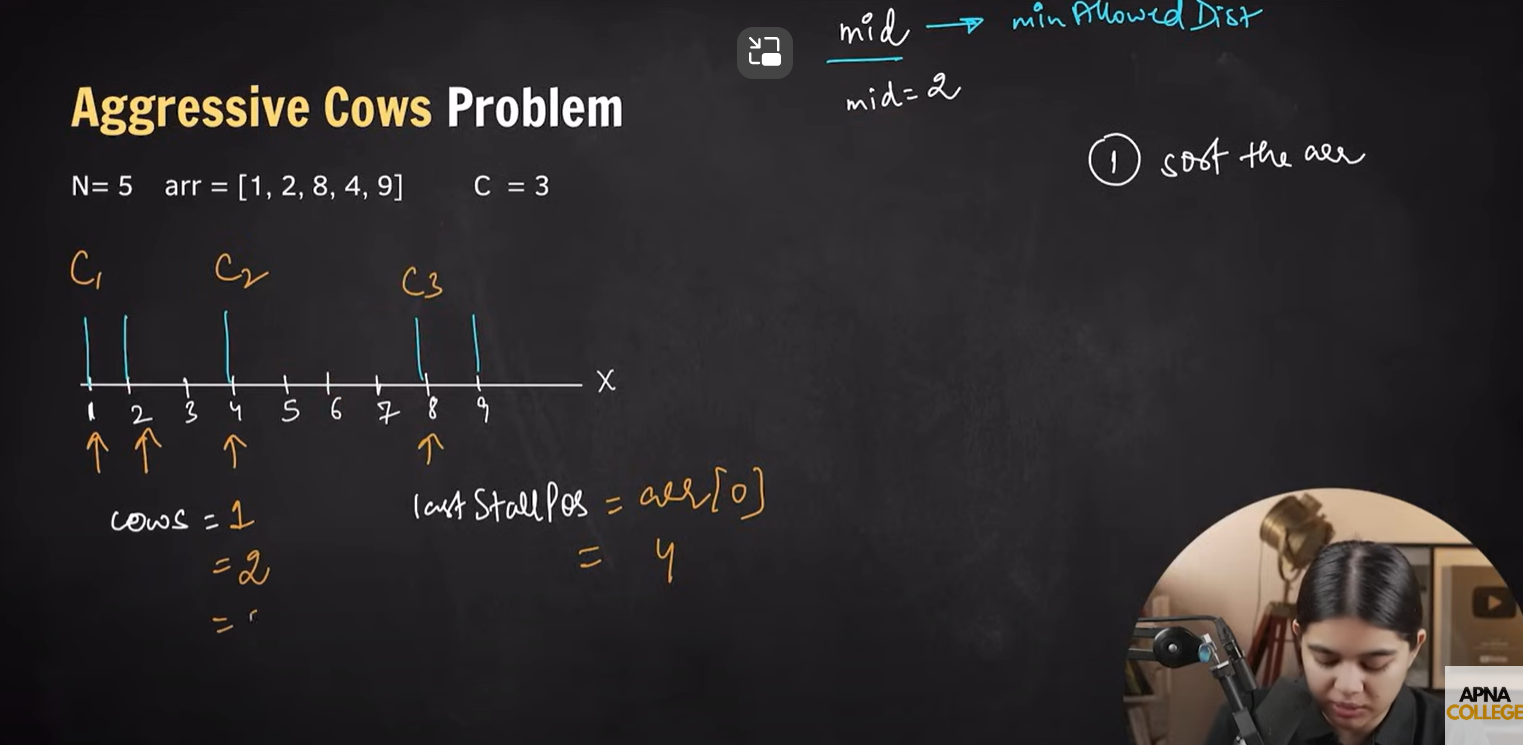 mid → minAllowed Dist
mid = 2
Aggressive Cows Problem
① sort the arr
N= 5 arr = [1, 2, 8, 4, 9] C = 3
C1 C2 C3
X
1 2 3 4 5 6 7 8 9
cows = 1 lastStallPos = arr[0]
= 2 = 4
=
APNA
COLLEGE